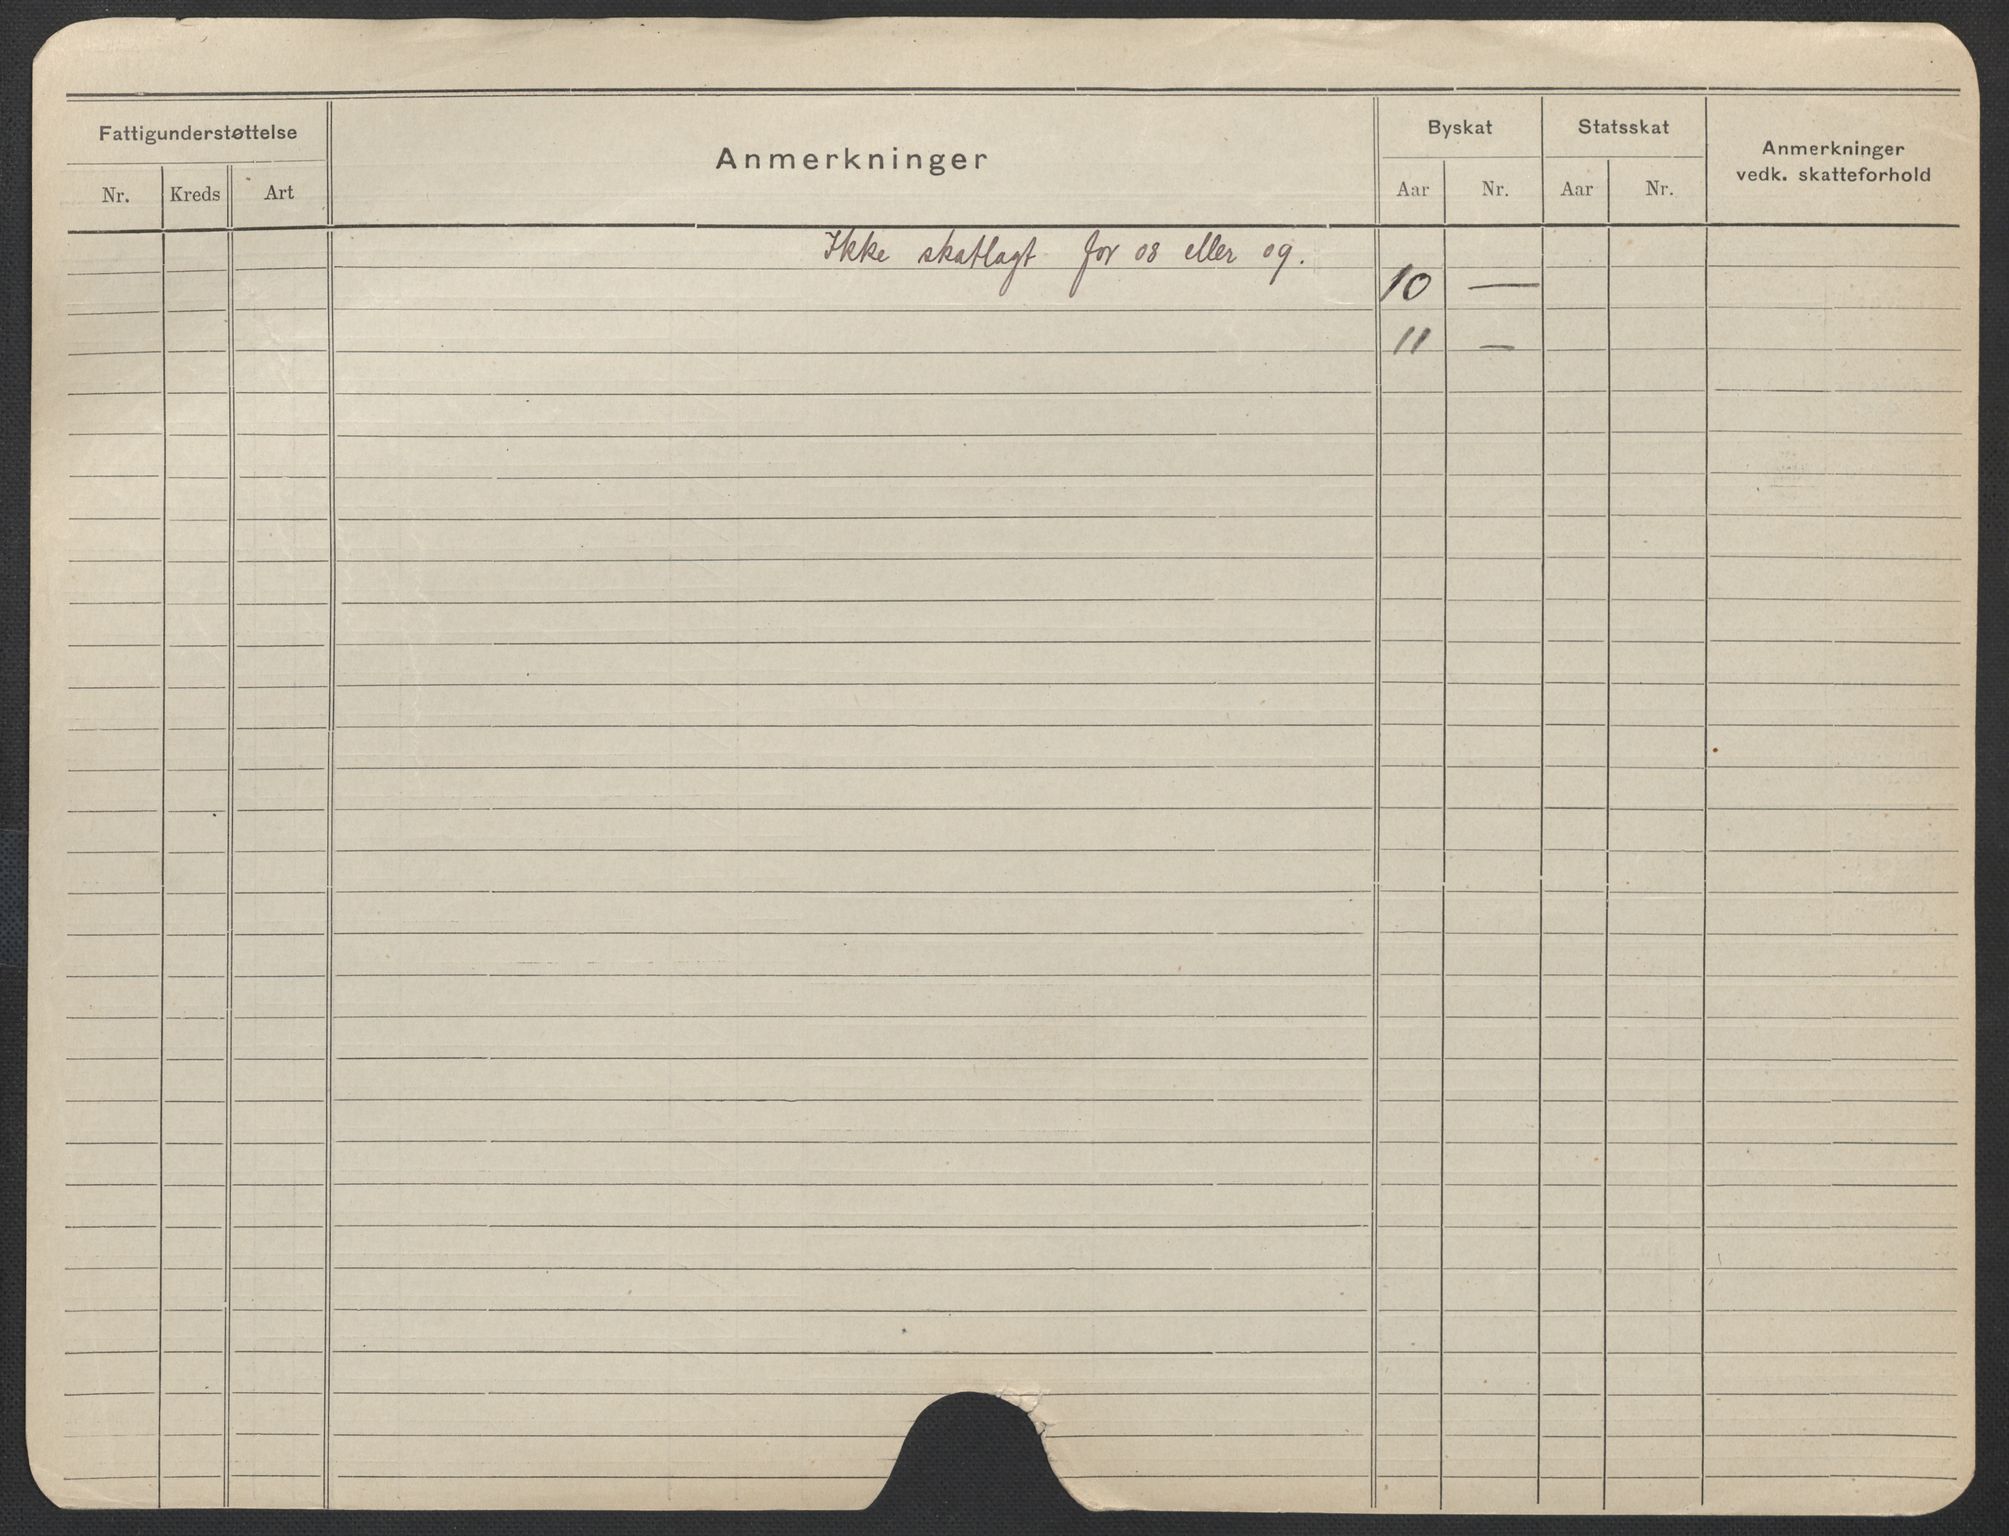 Fattigunderstøttelse
Nr. Kreds Art
Anmerkninger
Byskat
Aar Nr.
Statsskat
Aar Nr.
Anmerkninger
vedk. skatteforhold
Ikke skatlagt for 08 eller 09.
10 —
11 —